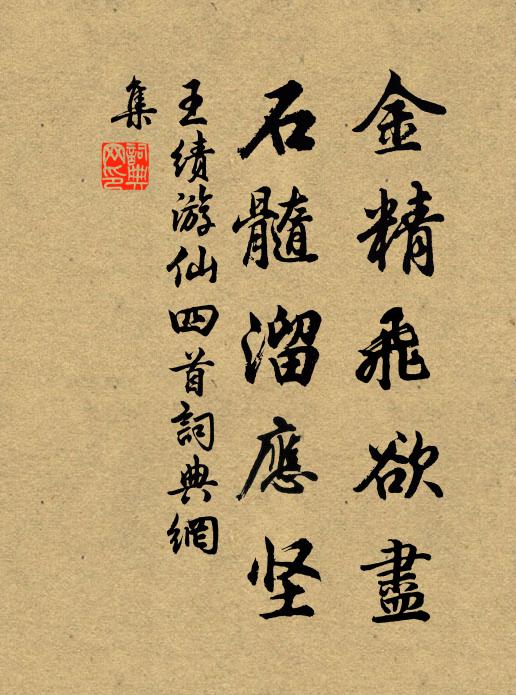 金精飛欲盡
石髓溜應坚
王績游仙四首詞典網
集
詞典
网印